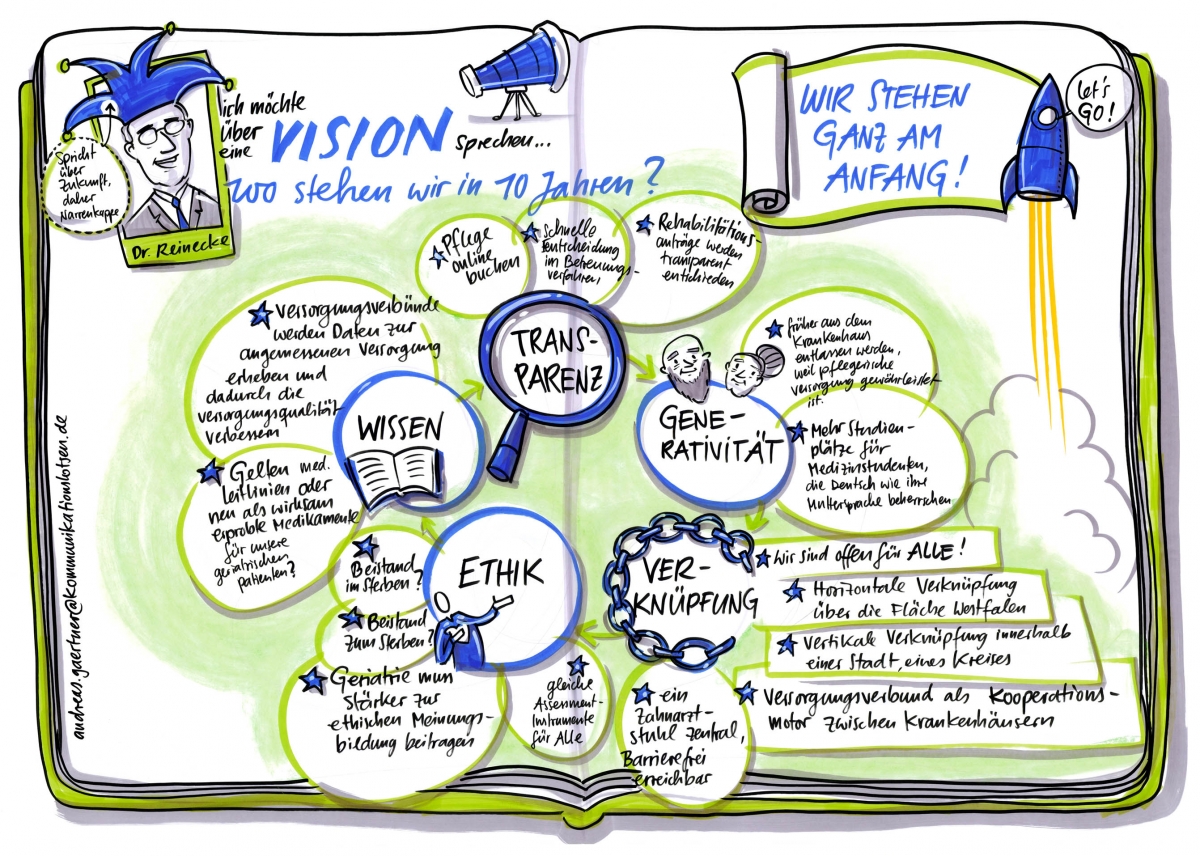 ich möchte
über
eine
VISION
sprechen...
wo stehen wir in 10 Jahren?
Spricht
über
Zukunft,
daher
Narrenkappe
Dr. Reinecke
WIR STEHEN
GANZ AM
ANFANG!
Let's
GO!
Pflege
online
buchen
Schnelle
Entscheidung
im Betreuungs-
verfahren
Rehabilitations-
anträge werden
transparent
entschieden
TRANS-
PARENZ
Versorgungsverbünde
werden Daten zur
angemessenen Versorgung
erheben und
dadurch die
Versorgungsqualität
verbessern
WISSEN
Gelten med.
Leitlinien oder
neu als wirksam
erprobte Medikamente
für unsere
geriatrischen
Patienten?
GENE-
RATIVITÄT
früher aus dem
Krankenhaus
entlassen werden,
weil pflegerische
Versorgung gewährleistet
ist.
Mehr Studien-
plätze für
Medizinstudenten,
die Deutsch wie ihre
Muttersprache beherrschen
ETHIK
Beistand
im Sterben?
Beistand
zum Sterben?
Geriatrie muss
Stärker zur
ethischen Meinungs-
bildung beitragen
VER-
KNÜPFUNG
Wir sind offen für ALLE!
Horizontale Verknüpfung
über die Fläche Westfalen
Vertikale Verknüpfung innerhalb
einer Stadt, eines Kreises
Versorgungsverbund als Kooperations-
motor zwischen Krankenhäusern
gleiche
Assessment-
Instrumente
für Alle
ein
Zahnarzt-
stuhl zentral,
Barrierefrei
erreichbar
andreas.gaertner@kommunikationslotsen.de